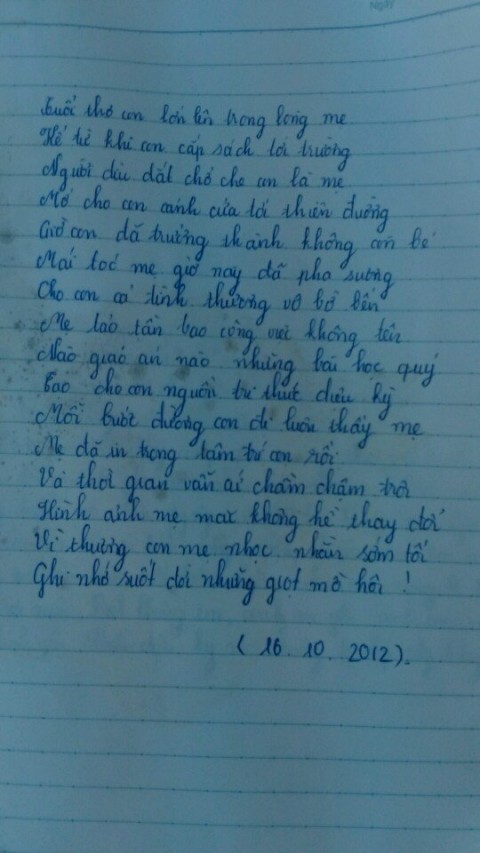 Ngày
Tuổi thơ con lớn lên trong lòng mẹ
Kể từ khi con cắp sách tới trường
Người dìu dắt chở che con là mẹ
Mở cho con cánh cửa tới thiên đường
Giờ con đã trưởng thành không còn bé
Mái tóc mẹ giờ nay đã pha sương
Cho con cả tình thương vô bờ bến
Mẹ tảo tần bao công việc không tên
Nào giáo án nào những bài học quý
Trao cho con nguồn tri thức diệu kỳ
Mỗi bước đường con đi luôn thấy mẹ
Mẹ đã in trong tâm trí con rồi
Và thời gian vẫn cứ chầm chậm trôi
Hình ảnh mẹ max không hề thay đổi
Vì thương con mẹ nhọc nhằn sớm tối
Ghi nhớ suốt đời những giọt mồ hôi !
( 16. 10. 2012).